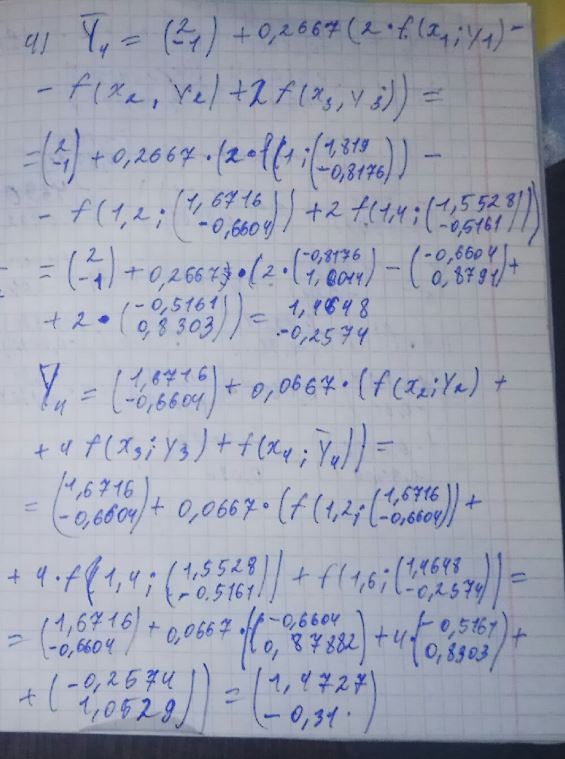 4) Ȳ₄ = (2 -1) + 0,2667 (2·f(x₁; y₁) -
- f(x₂, y₂) + 2 f(x₃, y₃)) =
= (2 -1) + 0,2667 · (2·f(1; (1,819 -0,8176)) -
- f(1,2; (1,6716 -0,6604)) + 2 f(1,4; (1,5528 -0,5161)))
= (2 -1) + 0,2667 · (2·(-0,8176 1,0014) - (-0,6604 0,8791) +
+ 2·(-0,5161 0,8303)) = 1,4648 -0,2574
Y₄ = (1,6716 -0,6604) + 0,0667 · (f(x₂; y₂) +
+ 4 f(x₃; y₃) + f(x₄; Ȳ₄)) =
= (1,6716 -0,6604) + 0,0667 · (f(1,2; (1,6716 -0,6604)) +
+ 4·f(1,4; (1,5528 -0.5161)) + f(1,6; (1,4648 -0,2574)) =
= (1,6716 -0,6604) + 0,0667 · ((-0,6604 0,87882) + 4·(-0,5161 0,8303) +
+ (-0,2574 1,0529)) = (1,4727 -0,31·)